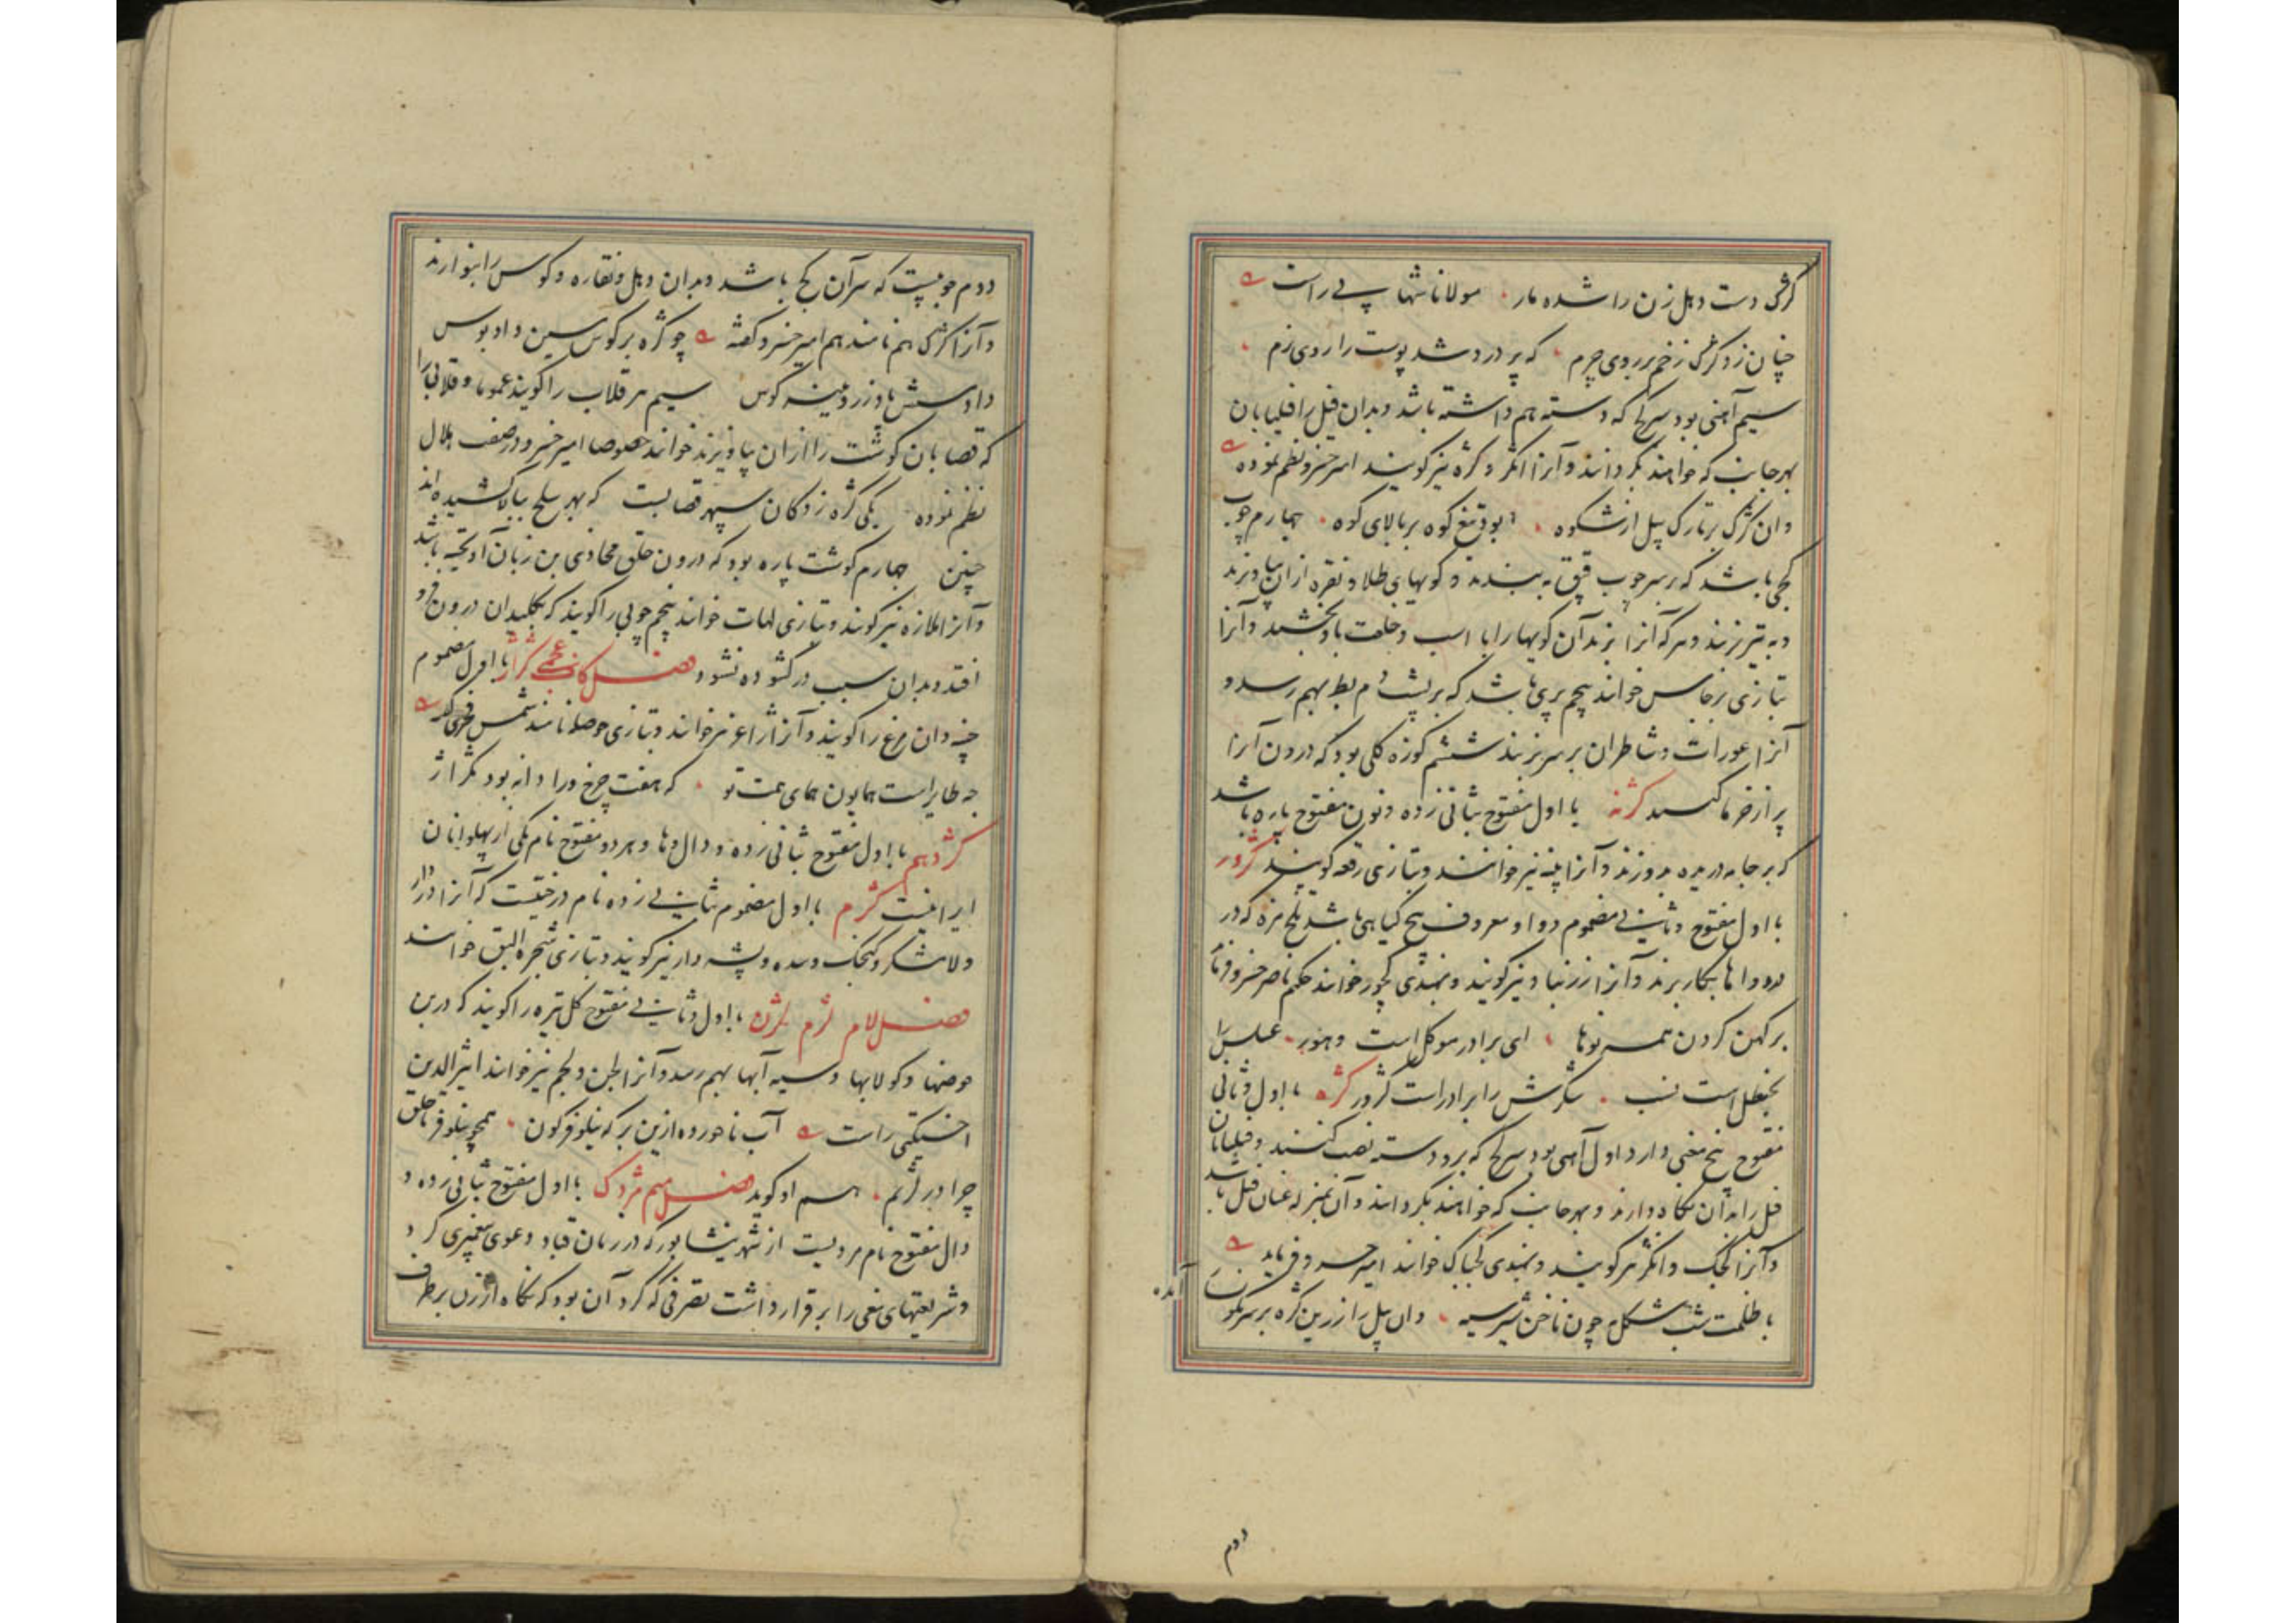 کژک دست دهل زن را شده مار مولانا شهابی راست
چنان زد کژک زخم بر روی چرم که پر درد شد پوست را روی نرم
سیم آهنی بود سرکج که دسته هم داشته باشد و بدان فیل را فیلبانان
بهر جانب که خواهند بگردانند و آنرا انکژ و کژه نیز گویند امیر خسرو نظم نموده
وان کژک بر تارک پیل از شکوه بود تیغ کوه بر بالای کوه چهارم چوب
کجی باشد که بر سر چوب قپق به بندند و گویهای طلا و نقره ازان بیاویزند
و به تیر زنند و هر که آنرا بزند آن گویها را با اسب و خلعت باو بخشند و آنرا
بتازی برجاس خوانند پنجم پری باشد که بر پشت دم بط بهم رسد و
آنرا عورات و شاطران بر سر زنند ششم کوزه گلی بود که درون آنرا
پر از خرما کنند کژنه با اول مفتوح بثانی زده و نون مفتوح پاره باشد
که بر جامه دریده بدوزند و آنرا پینه نیز خوانند و بتازی رقعه گویند کژور
با اول مفتوح و ثانی مضموم و واو معروف بیخ گیاهی باشد تلخ مزه که در
دواها بکار برند و آنرا زرنباد نیز گویند و بهندی کچور خوانند حکیم ناصر خسرو فرماید
بر کهن کردن همه نوها ای برادر موکل است دهور عسلش را
بحنظل است نسب شکرش را برادر است کژور کژه با اول و ثانی
مفتوح پنج معنی دارد اول آهنی بود سرکج که برو دسته نصب کنند و فیلبانان
فیل را بدان نگاه دارند و بهر جانب که خواهند بگردانند و آن بمنزله عنان فیل باشد
و آنرا کجک و انکژ نیز گویند و بهندی کجباک خوانند امیر خسرو فرماید
با ظلمت شب شکل چون ناخن شیر سیه وان پیل را زرین کژه بر سر نگونسار
آمده
دوم
دوم چوبیست که سر آن کج باشد و بدان دهل و نقاره و کوس را بنوازند
و آنرا کژک هم نامند هم امیر خسرو گفته چو کژه بر کوس سیمین داد بوس
داد سیم هر قلاب را گویند عموما و قلابی را
که قصابان گوشت را ازان بیاویزند خوانند خصوصا امیر خسرو در صفت هلال
نظم نموده یکی کژه ز دکان سپهر قصابست که بهر سلخ ببالا کشیده اند
چنین چهارم گوشت پاره بود که درون حلق محاذی بن زبان آویخته باشد
و آنرا ملازه نیز گویند و بتازی لهات خوانند پنجم چوبی را گویند که بکلیدان درون رود
افتد و بدان سبب در گشوده نشود فصل کاف عجمی گژار با اول مضموم
چینه دان مرغ را گویند و آنرا ژاغر نیز خوانند و بتازی حوصله نامند شمس فخری گوید
چه طایر است همایون همای همت تو که هفت چرخ ورا دانه بود بگژار
گژدهم با اول مفتوح بثانی زده و دال و ها و هر دو مفتوح نام یکی از پهلوانان
ایرانیست گژم با اول مضموم بثانی زده نام درختیست که آنرا
و لامشکر و کنجک و سده و پشه دار نیز گویند و بتازی شجرة البق خوانند
فصل لام لژم لژن با اول و ثانی مفتوح گل تیره را گویند که در بن
حوضها و کولابها و سیه آبها بهم رسد و آنرا لجن و لجم نیز خوانند اثیر الدین
اخسیکتی راست آب ناخورده ازین برکه نیلوفر گون همچو نیلوفر تا حلق
چرا در لژنم هم او گوید فصل میم مژدک با اول مفتوح بثانی زده و
دال مفتوح نام مردیست از شهر نیشابور که در زمان قباد دعوی پیغمبری کرد
و شریعتهای مغی را بر قرار داشت تصرفی که کرد آن بود که نکاح از زن بر طرف